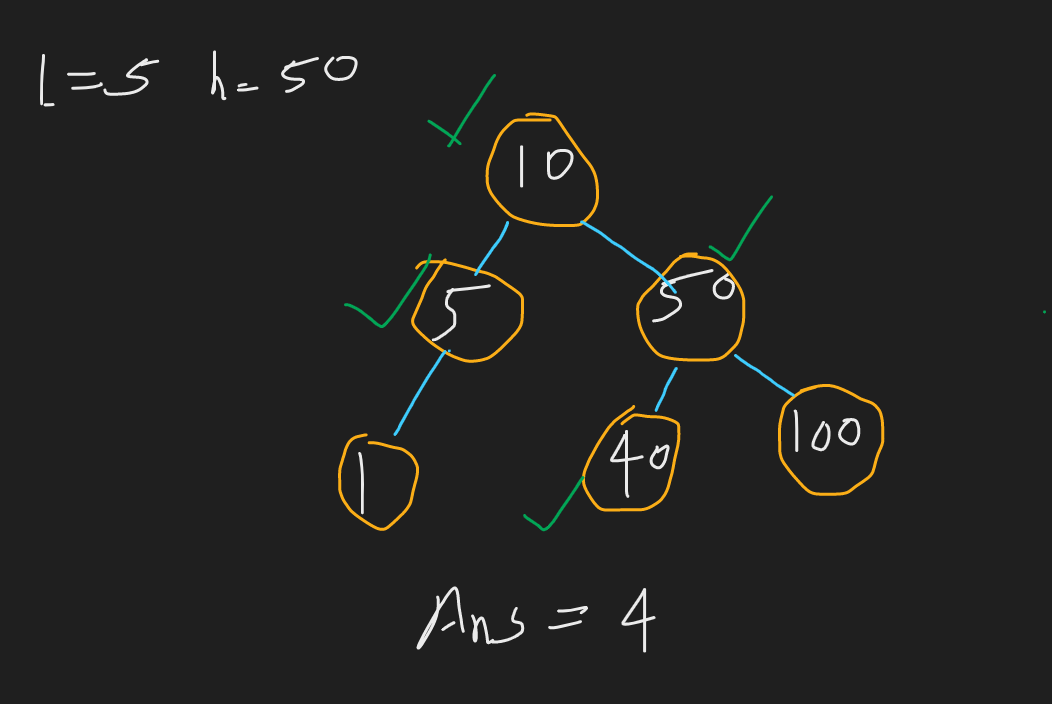 l=5 h=50
10
5 50
1 40 100
Ans = 4